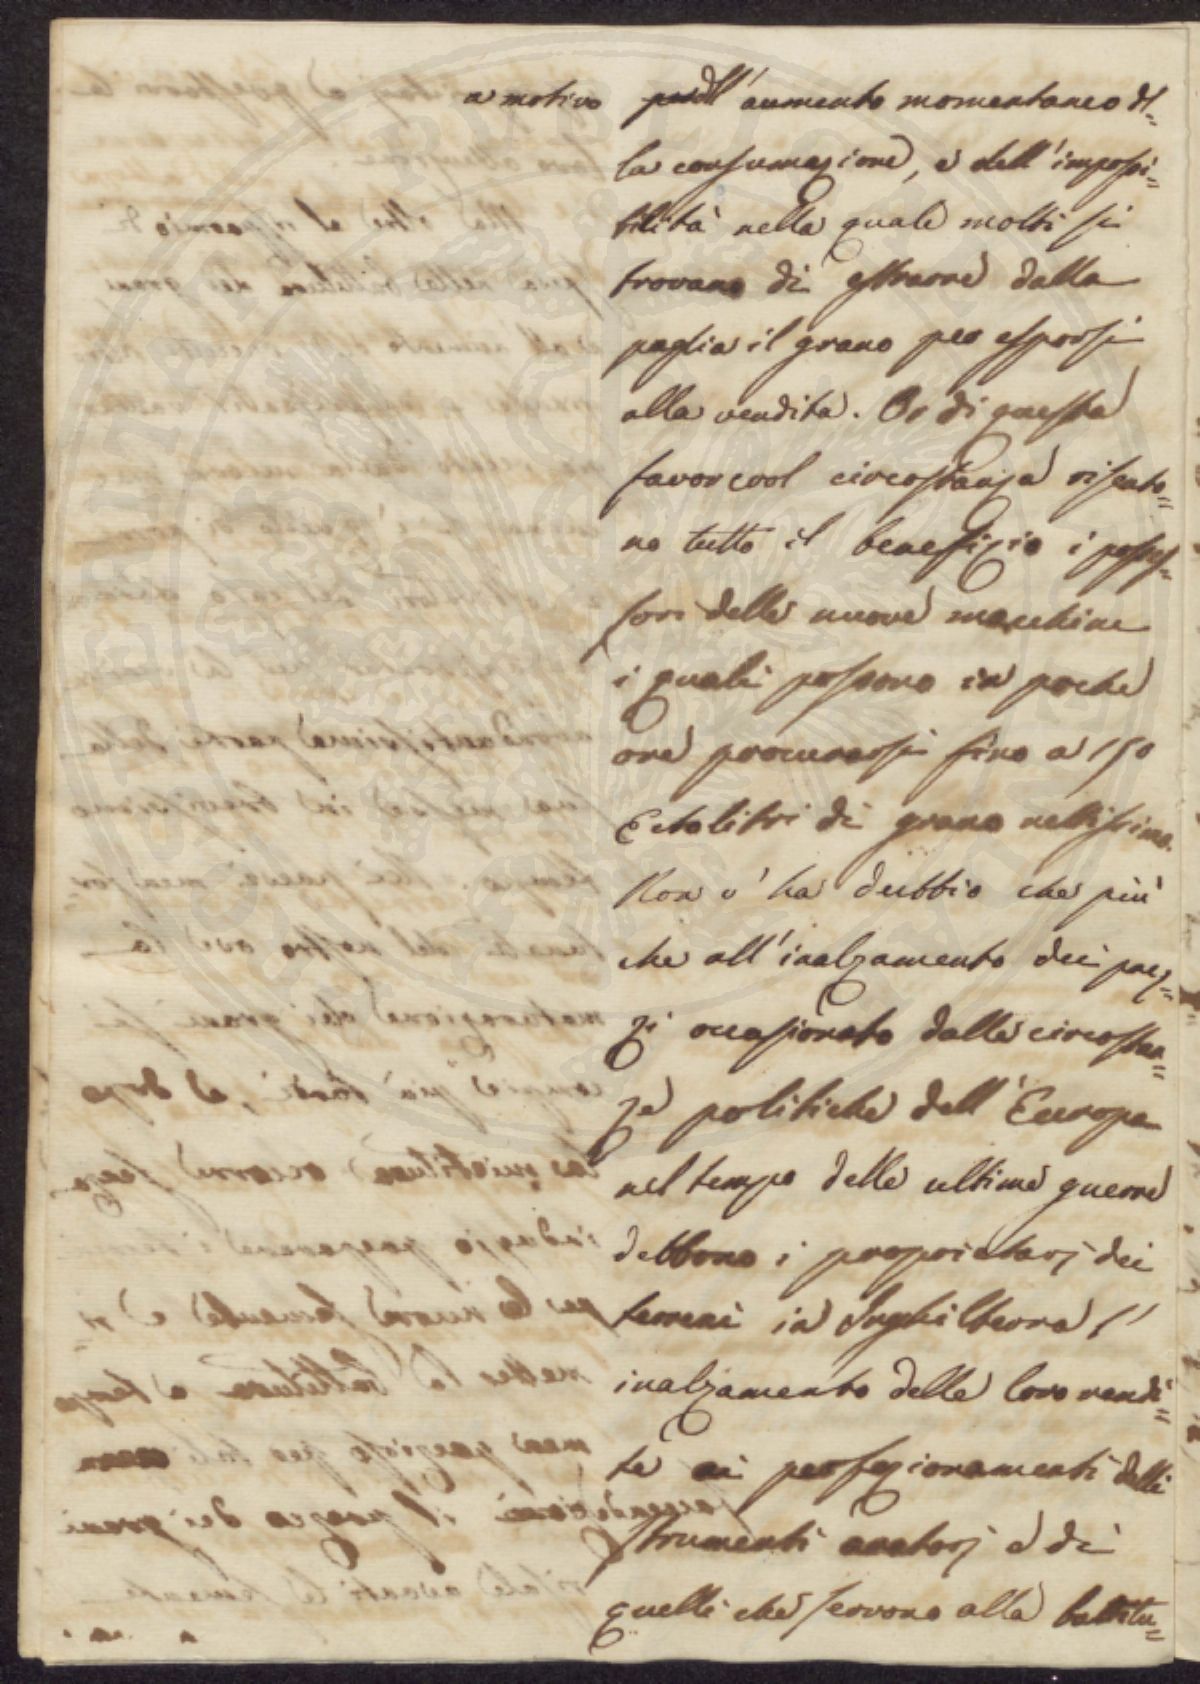 a motivo dell' aumento momentaneo del=
la consumazione, e dell' impossi=
bilità nella quale molti si
trovano di estrarre dalla
paglia il grano per esporsi
alla vendita. Or di questa
favorevol circostanza risento=
no tutto il benefizio i posses=
sori delle nuove macchine
i quali possono in poche
ore procurarsi fino a 150
Ectolitri di grano nettissimo.
Non v' ha dubbio che più
che all' inalzamento dei prez=
zi occasionato dalle circostan=
ze politiche dell' Europa
nel tempo delle ultime guerre
debbono i proprietarj dei
terreni in Inghilterra l'
inalzamento delle loro rendi=
te ai perfezionamenti delli
strumenti aratorj e di
quelli che servono alla battitu=